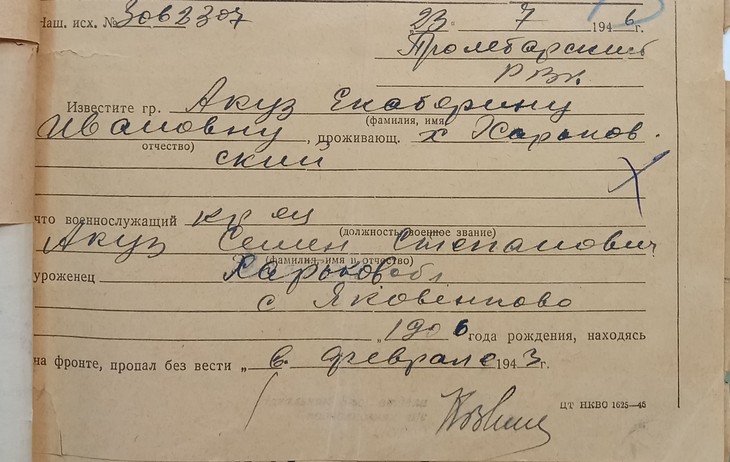 Наш. исх. № 3ов2307 „23" 7 1946 г.
Пролетарский
РВК
Известите гр. Акуз Екатерину
(фамилия, имя,
Ивановну, проживающ. х Харьков
отчество)
ский
что военнослужащий кр-ец
(должность, военное звание)
Акуз Семен Степанович
(фамилия, имя и отчество)
уроженец Харьков обл
с Яковенково
„1906 года рождения, находясь
на фронте, пропал без вести „в феврале 1943 г.
ЦТ НКВО 1625—45